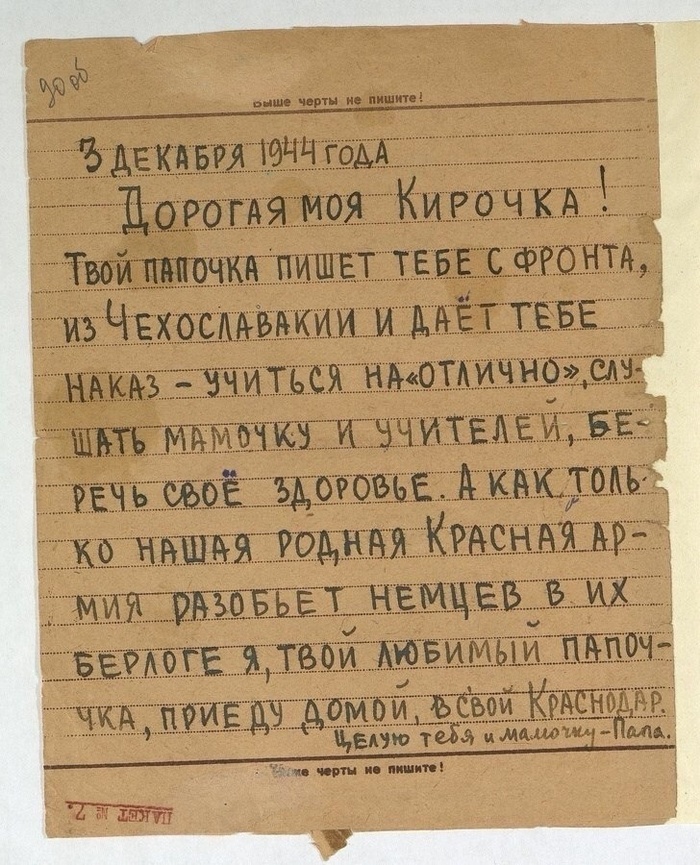 Выше черты не пишите!
3 ДЕКАБРЯ 1944 ГОДА
ДОРОГАЯ МОЯ КИРОЧКА!
ТВОЙ ПАПОЧКА ПИШЕТ ТЕБЕ С ФРОНТА,
ИЗ ЧЕХОСЛАВАКИИ И ДАЁТ ТЕБЕ
НАКАЗ – УЧИТЬСЯ НА «ОТЛИЧНО», СЛУ-
ШАТЬ МАМОЧКУ И УЧИТЕЛЕЙ, БЕ-
РЕЧЬ СВОЁ ЗДОРОВЬЕ. А КАК ТОЛЬ-
КО НАШАЯ РОДНАЯ КРАСНАЯ АР-
МИЯ РАЗОБЬЕТ НЕМЦЕВ В ИХ
БЕРЛОГЕ Я, ТВОЙ ЛЮБИМЫЙ ПАПОЧ-
ЧКА, ПРИЕДУ ДОМОЙ, В СВОЙ КРАСНОДАР.
ЦЕЛУЮ тебя и мамочку – Папа.
Ниже черты не пишите!
ПАКЕТ № 2.